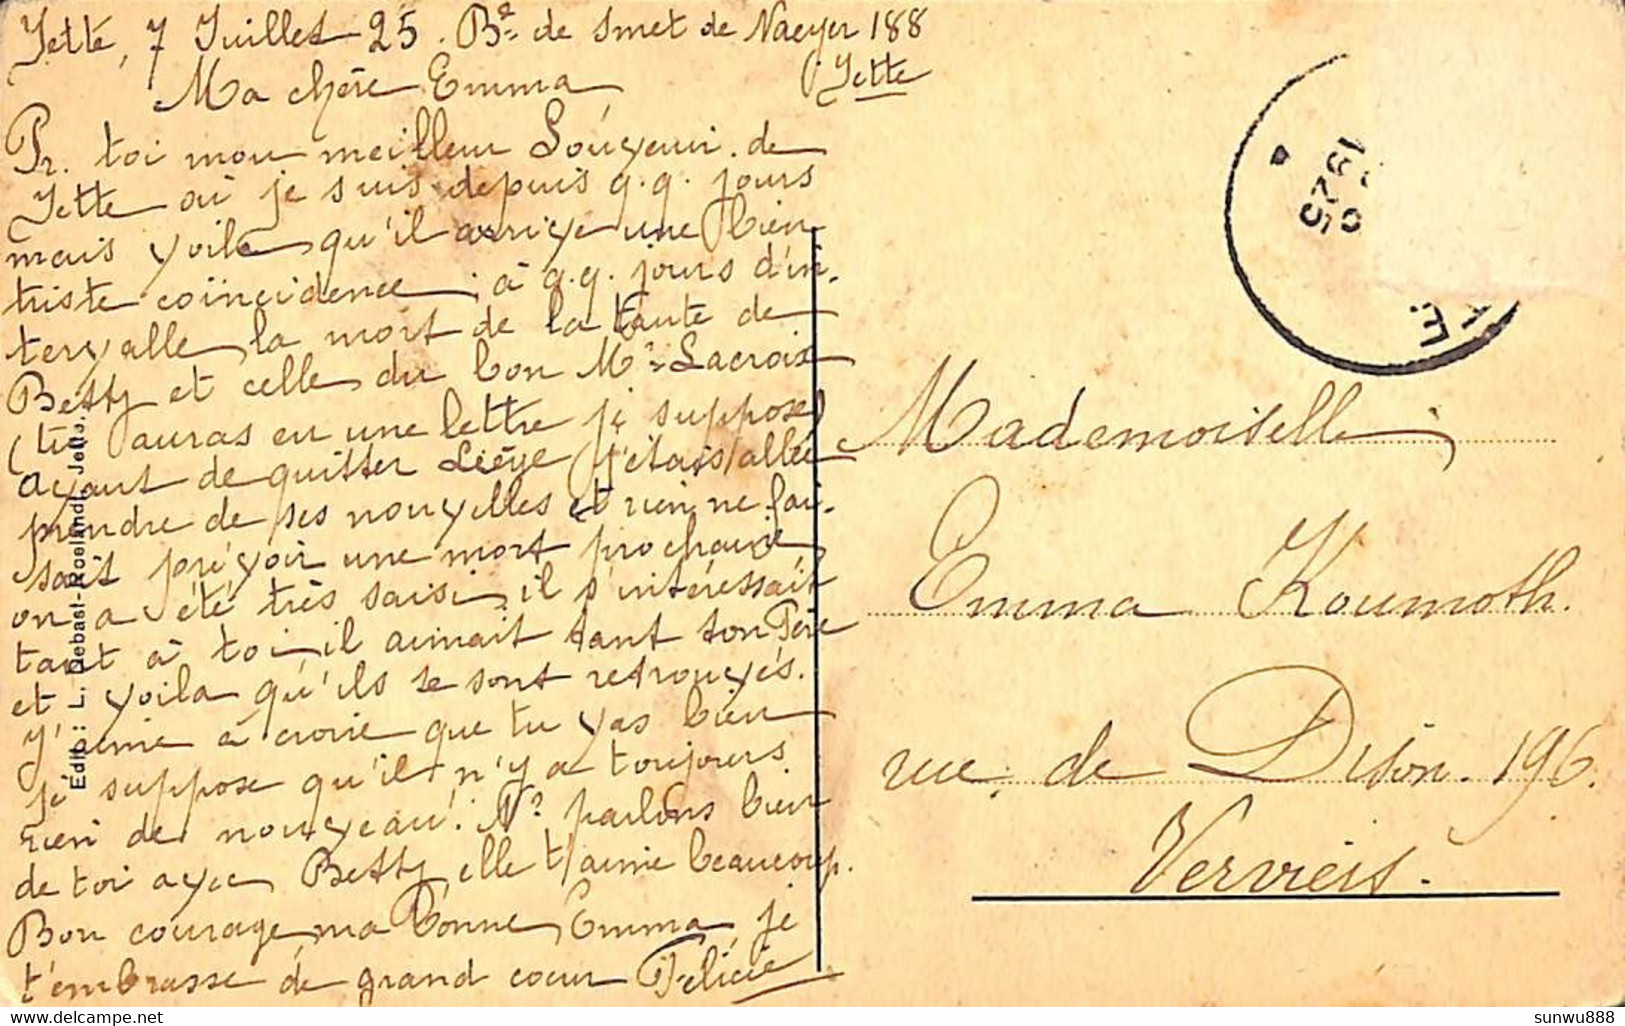 Jette, 7 Juillet 25. Bd de Smet de Naeyer 188
Jette
Ma chère Emma
Pr. toi mon meilleur Souvenir de
Jette où je suis depuis q.q. jours
mais voilà qu'il arrive une bien
triste coïncidence, à q.q. jours d'in-
tervalle la mort de la tante de
Betty et celle du bon Mr Lacroix
(tu auras eu une lettre je suppose)
avant de quitter Liège j'étais allée
prendre de ses nouvelles et rien ne fai-
sait prévoir une mort prochaine,
on a été très saisi, il s'intéressait
tant à toi il aimait tant ton Père
et voila qu'ils se sont retrouvés.
J'aime à croire que tu vas bien
je suppose qu'il n'y a toujours
rien de nouveau. Ns parlons bien
de toi avec Betty elle t'aime beaucoup.
Bon courage, ma bonne Emma, je
t'embrasse de grand coeur Félicie
Edit.: L. Debast-Roelandt, Jette.
1925
E.
Mademoiselle
Emma Koumoth.
rue de Dison. 196.
Verviers.
sunwu888